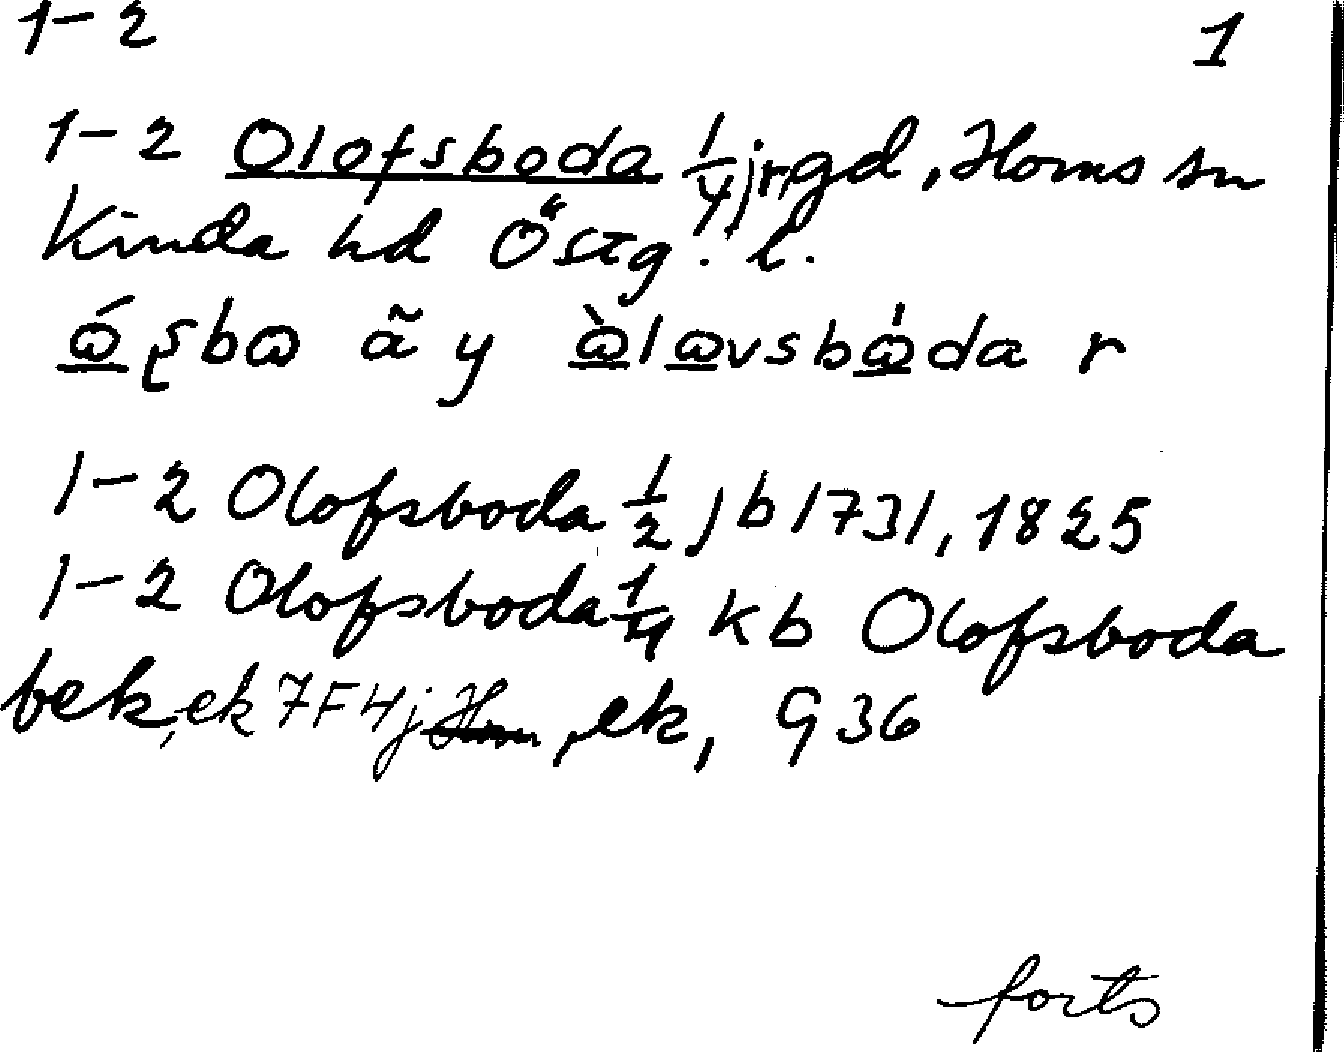 1-2 1
1-2 Olofsboda 1/4 jrgd, Horns sn
Kinda hd Östg. l.
ó̲ʂbɷ ã y ɷ̲̀lɷ̲vsbɷ̲́da r
1-2 Olofsboda 1/2 jb 1731, 1825
1-2 Olofsboda 1/4 kb Olofsboda
bek, ek 7F4j, ek, G36
forts